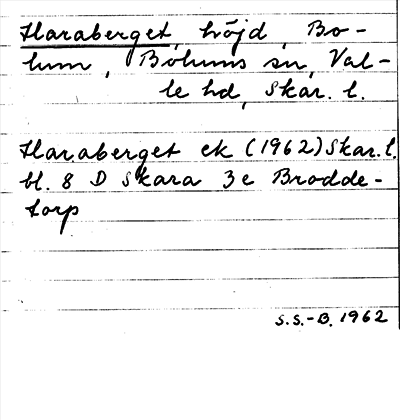 Haraberget, höjd, Bo-
lum, Bolums sn, Val-
le hd, Skar. l.
Haraberget ek (1962) Skar. l.
bl. 8 D Skara 3e Brodde-
torp
S.S.-B. 1962